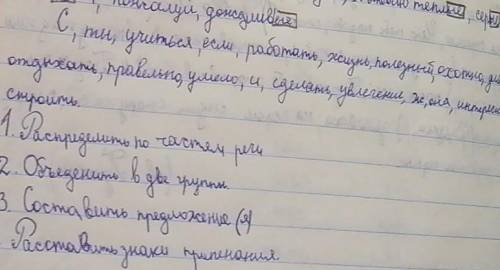 пожалуй, дождливые теплые
С, ты, учиться, если, работать, жизнь, полезный, охотно,
отдыхать, правельно, умело, и, сделать, увлечение, же, она,
строить.
1. Распределить по частям речи
2. Объеденить в две группы.
3. Составить предложение (я)
Расставить знаки припенания